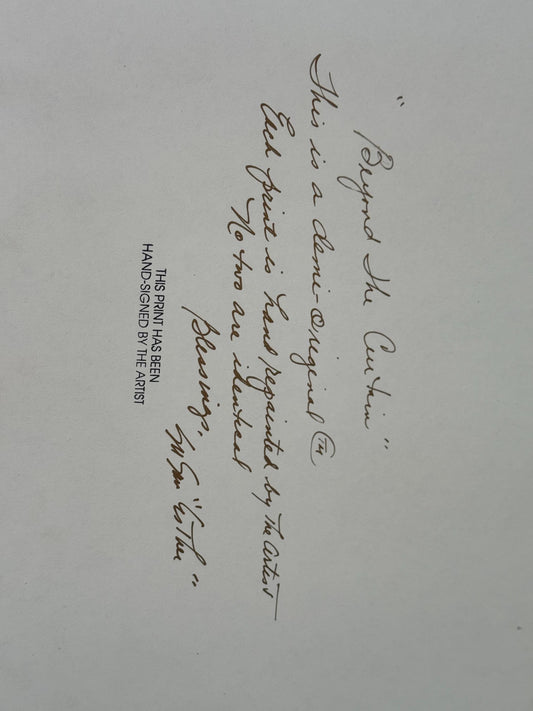 "Beyond the Curtain"
This is a demi-Original TM
Each print is hand repainted by The Artist
No two are identical
Blessings,
"Esther"
THIS PRINT HAS BEEN
HAND-SIGNED BY THE ARTIST